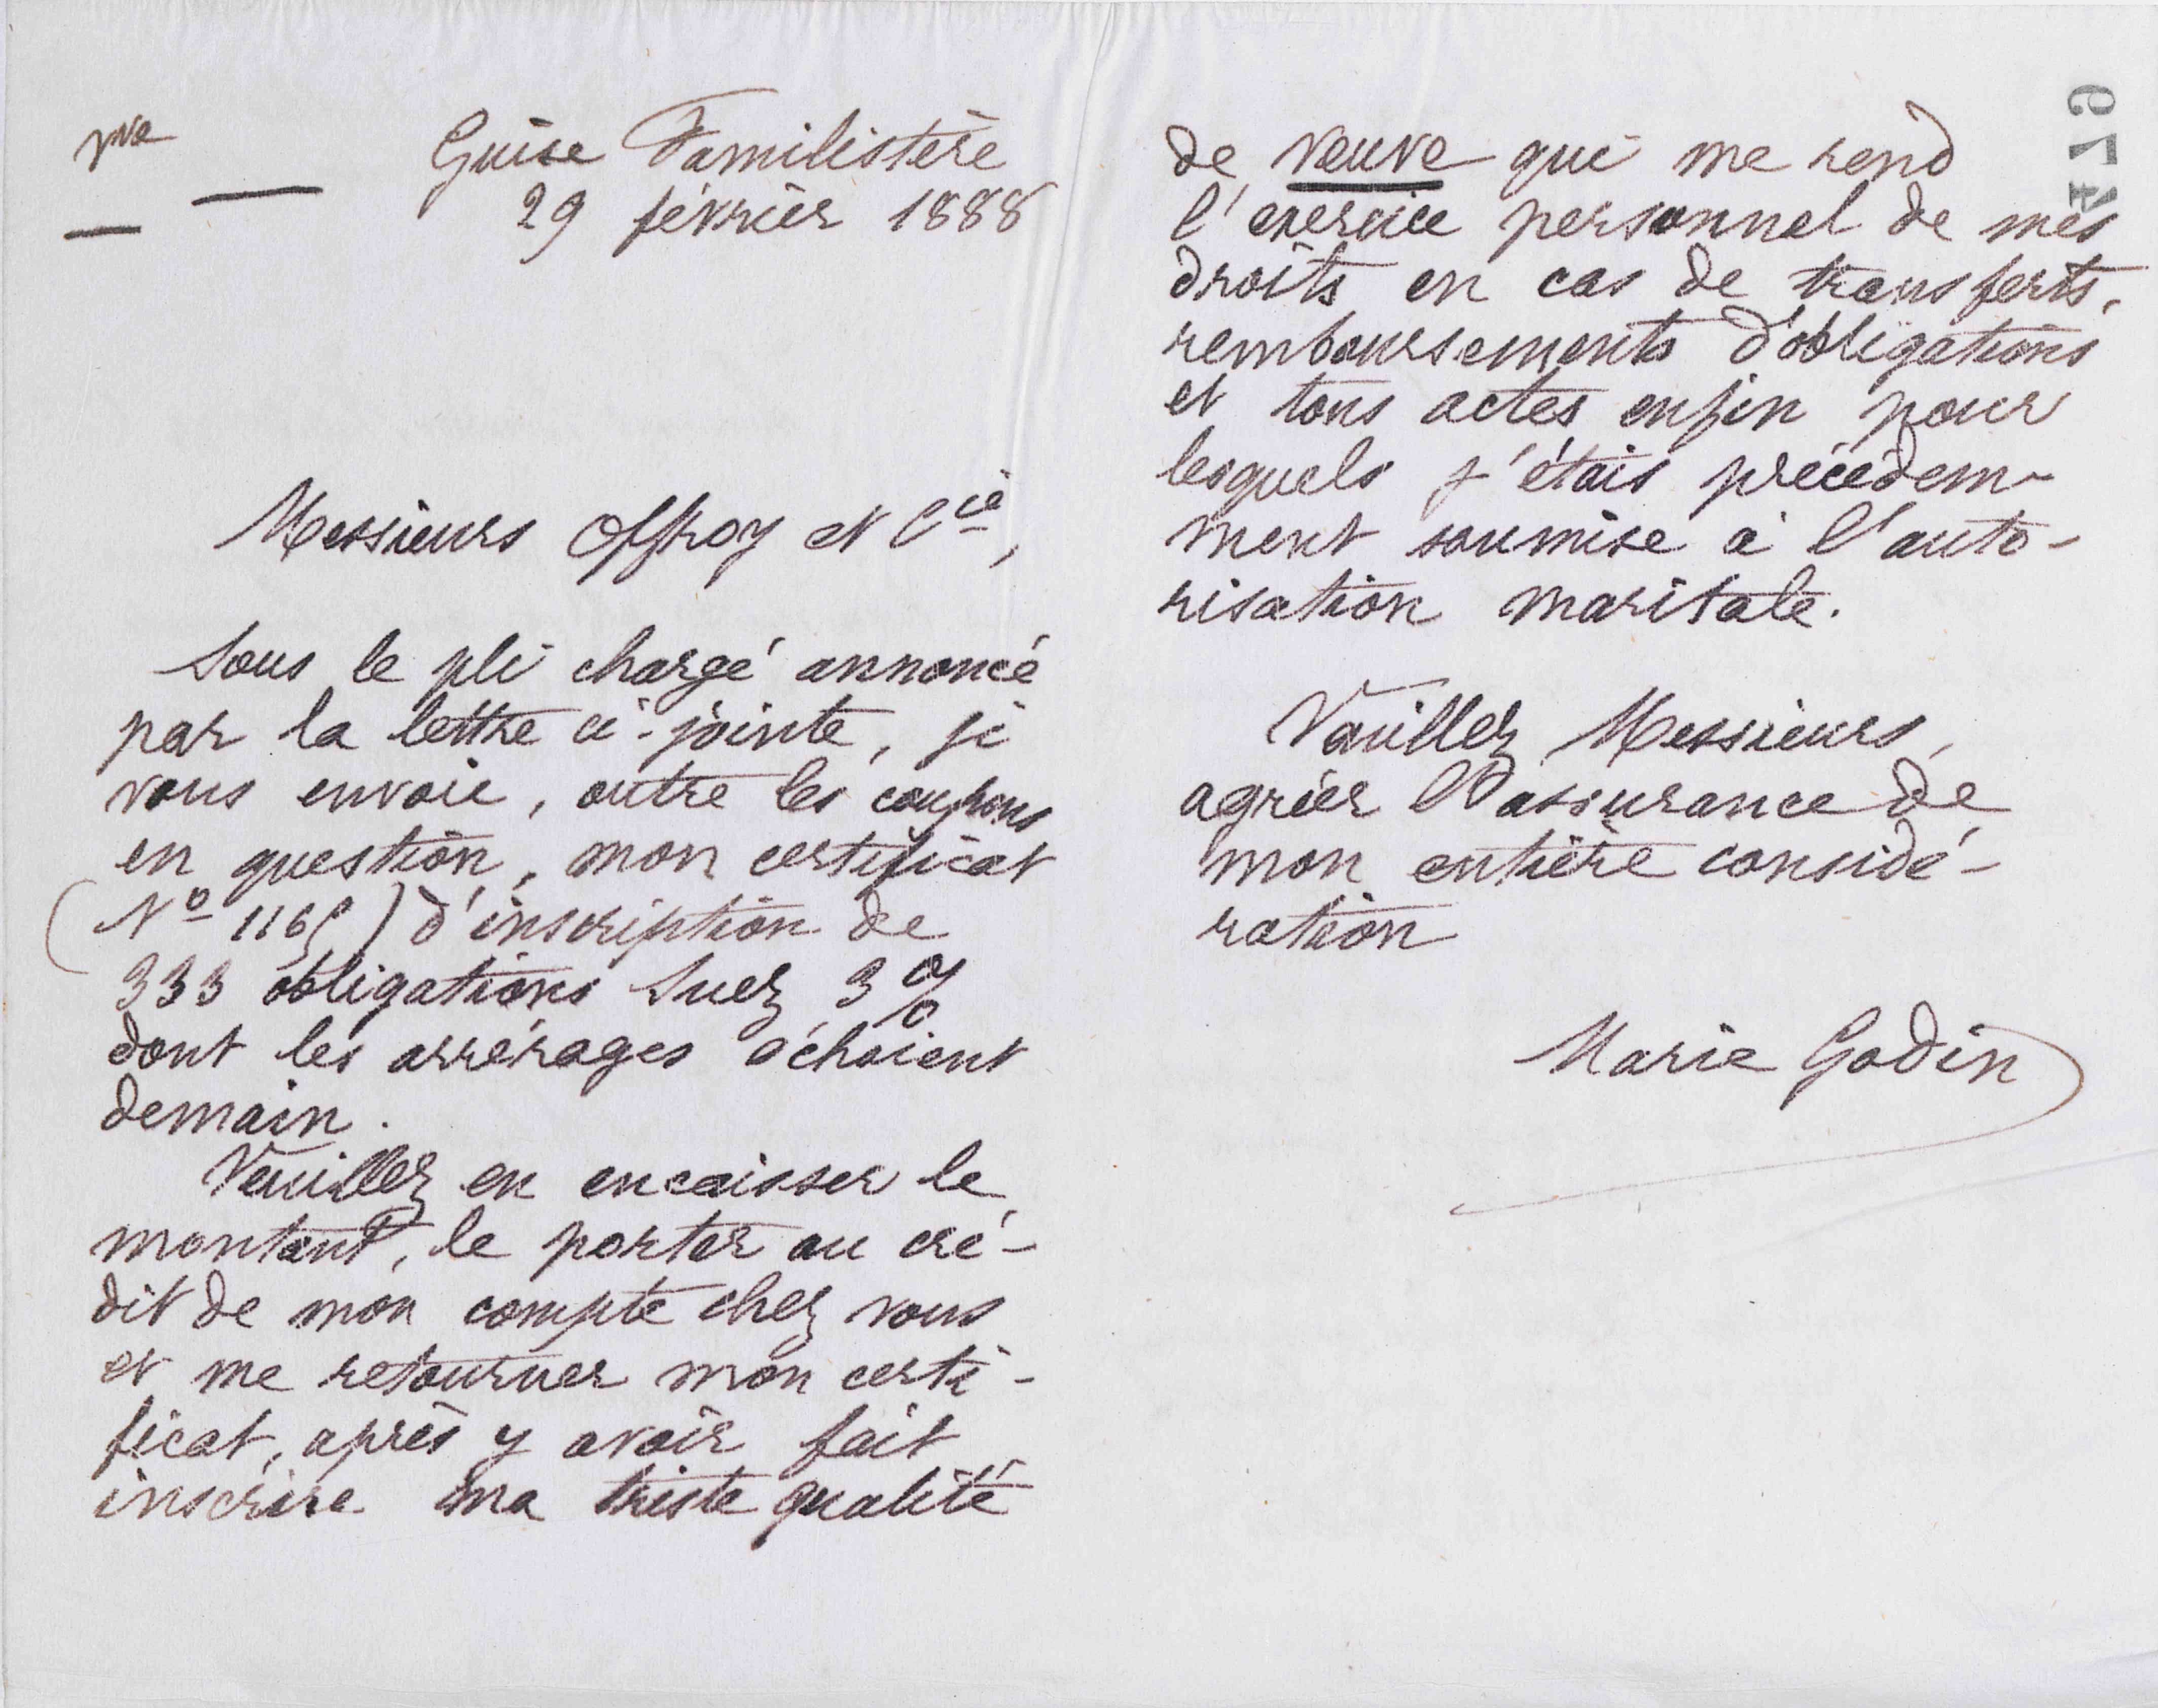 pve
Guise Familistère
29 février 1888
Messieurs Offroy et Cie,
Sous le pli chargé annoncé
par la lettre ci-jointe, je
vous envoie, outre les coupons
en question, mon certificat
(No 1165) d'inscription de
333 obligations Suez 3 %
dont les arrérages échoient
demain.
Veuillez en encaisser le
montant, le porter au cré-
dit de mon compte chez vous
et me retourner mon certi-
ficat, après y avoir fait
inscrire ma triste qualité
479
de veuve qui me rend
l'exercice personnel de mes
droits en cas de transferts,
remboursements d'obligations
et tous actes enfin pour
lesquels j'étais précédem-
ment soumise à l'auto-
risation maritale.
Veuillez, Messieurs,
agréer l'assurance de
mon entière considé-
ration
Marie Godin